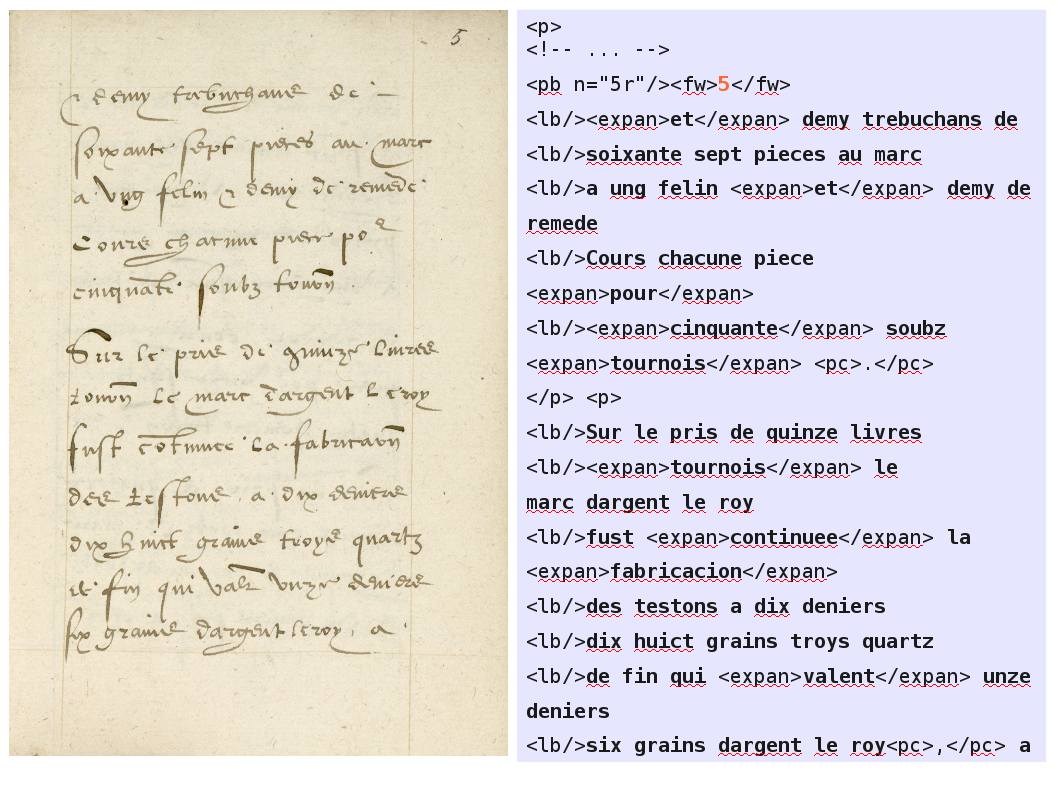 5
& demy trebuchans de
soixante sept pieces au marc
a ung felin & demy de remede
Cours chacune piece po^r
cinquãte soubz tourn̄
Sur le pris de quinze livres
tourn̄ le marc dargent le roy
fust cõtinuee la fabricaõn
des testons a dix deniers
dix huict grains troys quartz
de fin qui valẽt unze deniers
six grains dargent le roy, a
<p>
<!-- ... -->
<pb n="5r"/><fw>5</fw>
<lb/><expan>et</expan> demy trebuchans de
<lb/>soixante sept pieces au marc
<lb/>a ung felin <expan>et</expan> demy de
remede
<lb/>Cours chacune piece
<expan>pour</expan>
<lb/><expan>cinquante</expan> soubz
<expan>tournois</expan> <pc>.</pc>
</p> <p>
<lb/>Sur le pris de quinze livres
<lb/><expan>tournois</expan> le
marc dargent le roy
<lb/>fust <expan>continuee</expan> la
<expan>fabricacion</expan>
<lb/>des testons a dix deniers
<lb/>dix huict grains troys quartz
<lb/>de fin qui <expan>valent</expan> unze
deniers
<lb/>six grains dargent le roy<pc>,</pc> a